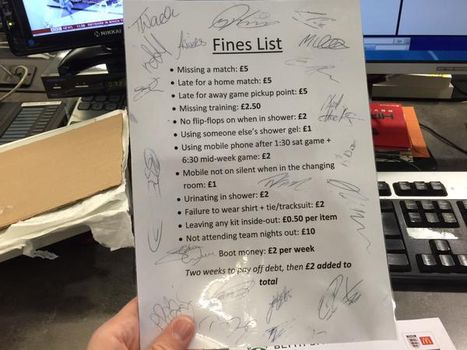 NIKKAI
Fines List
• Missing a match: £5
• Late for a home match: £5
• Late for away game pickup point: £5
• Missing training: £2.50
• No flip-flops on when in shower: £2
• Using someone else's shower gel: £1
• Using mobile phone after 1:30 sat game +
6:30 mid-week game: £2
• Mobile not on silent when in the changing
room: £1
• Urinating in shower: £2
• Failure to wear shirt + tie/tracksuit: £2
• Leaving any kit inside-out: £0.50 per item
• Not attending team nights out: £10
Boot money: £2 per week
Two weeks to pay off debt, then £2 added to
total